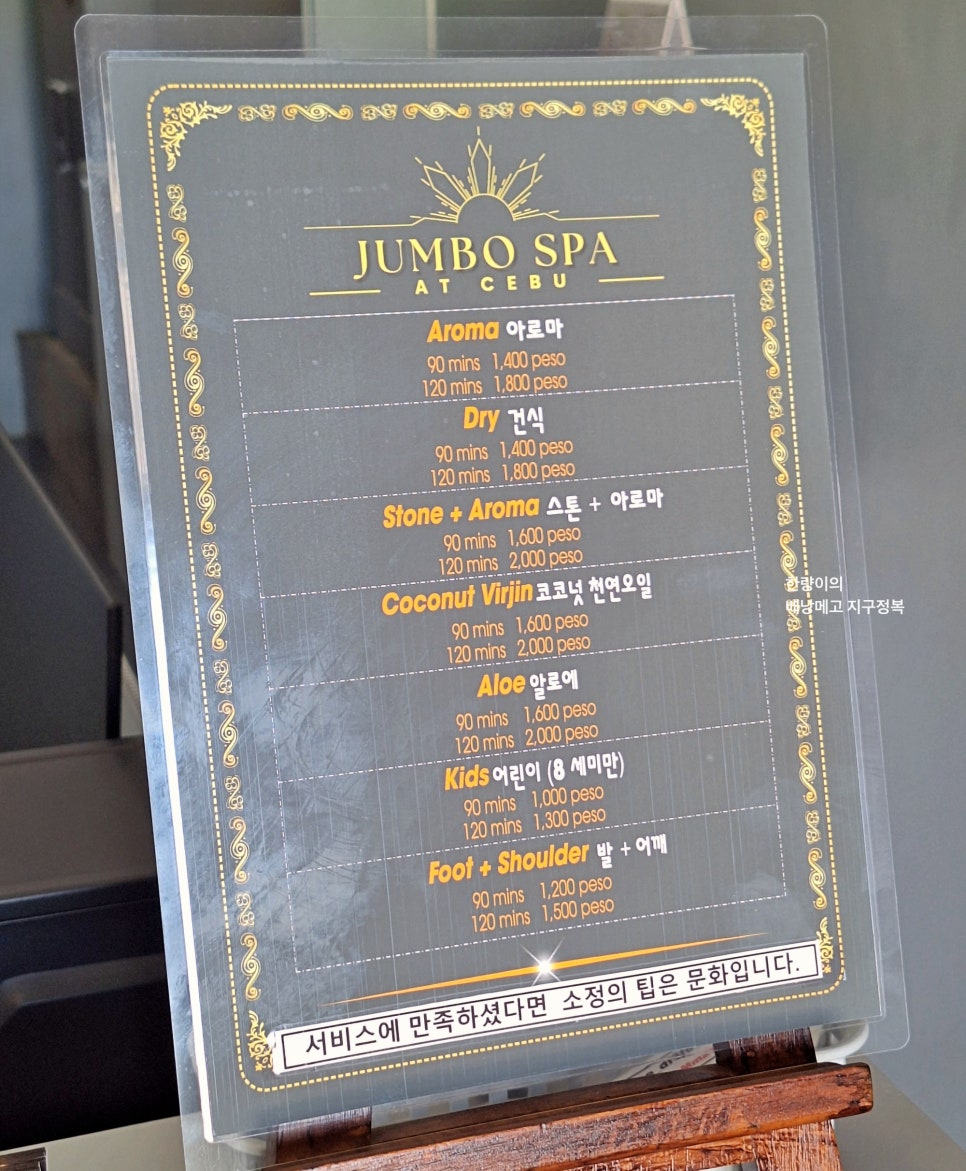 JUMBO SPA
AT CEBU
Aroma 아로마
90 mins 1,400 peso
120 mins 1,800 peso
Dry 건식
90 mins 1,400 peso
120 mins 1,800 peso
Stone + Aroma 스톤 + 아로마
90 mins 1,600 peso
120 mins 2,000 peso
Coconut Virjin 코코넛 천연오일
90 mins 1,600 peso
120 mins 2,000 peso
Aloe 알로에
90 mins 1,600 peso
120 mins 2,000 peso
Kids 어린이 (8 세미만)
90 mins 1,000 peso
120 mins 1,300 peso
Foot + Shoulder 발 + 어깨
90 mins 1,200 peso
120 mins 1,500 peso
서비스에 만족하셨다면 소정의 팁은 문화입니다.
한량이의
배낭메고 지구정복